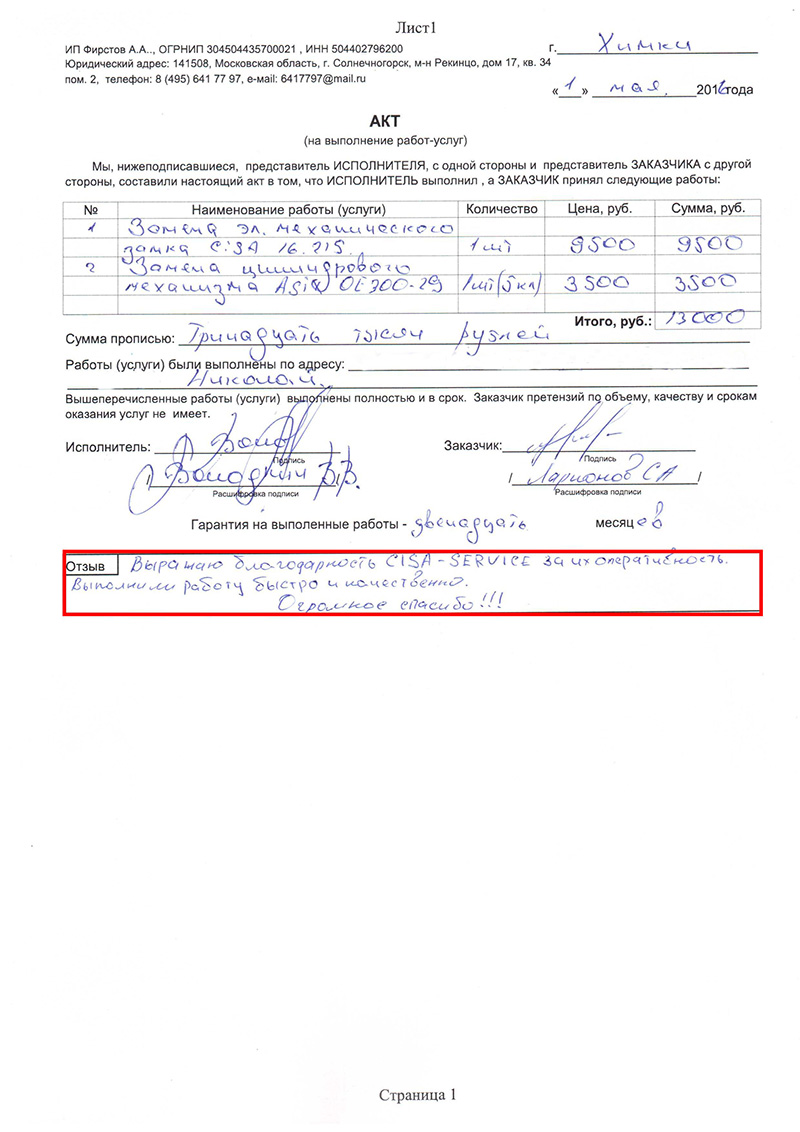 Лист1
ИП Фирстов А.А.., ОГРНИП 304504435700021 , ИНН 504402796200
г. Химки
Юридический адрес: 141508, Московская область, г. Солнечногорск, м-н Рекинцо, дом 17, кв. 34
пом. 2, телефон: 8 (495) 641 77 97, e-мail: 6417797@mail.ru
«1» мая 2016года
АКТ
(на выполнение работ-услуг)
Мы, нижеподписавшиеся, представитель ИСПОЛНИТЕЛЯ, с одной стороны и представитель ЗАКАЗЧИКА с другой
стороны, составили настоящий акт в том, что ИСПОЛНИТЕЛЬ выполнил , а ЗАКАЗЧИК принял следующие работы:
№ Наименование работы (услуги) Количество Цена, руб. Сумма, руб.
1 Замена эл. механического
замка CISA 16.215. 1шт 9500 9500
2 Замена цилиндрового
механизма ASIX OE300-29 1шт(5кл) 3500 3500
Итого, руб.: 13000
Сумма прописью: Тринадцать тысяч рублей
Работы (услуги) были выполнены по адресу:
Николай.
Вышеперечисленные работы (услуги) выполнены полностью и в срок. Заказчик претензий по объему, качеству и срокам
оказания услуг не имеет.
Исполнитель: Заказчик:
Подпись Подпись
/ Володкин В.В. / Ларионов СА /
Расшифровка подписи Расшифровка подписи
Гарантия на выполенные работы - двенадцать месяцев
Отзыв Выражаю благодарность CISA-SERVICE за их оперативность.
Выполнили работу быстро и качественно.
Огромное спасибо!!!
Страница 1